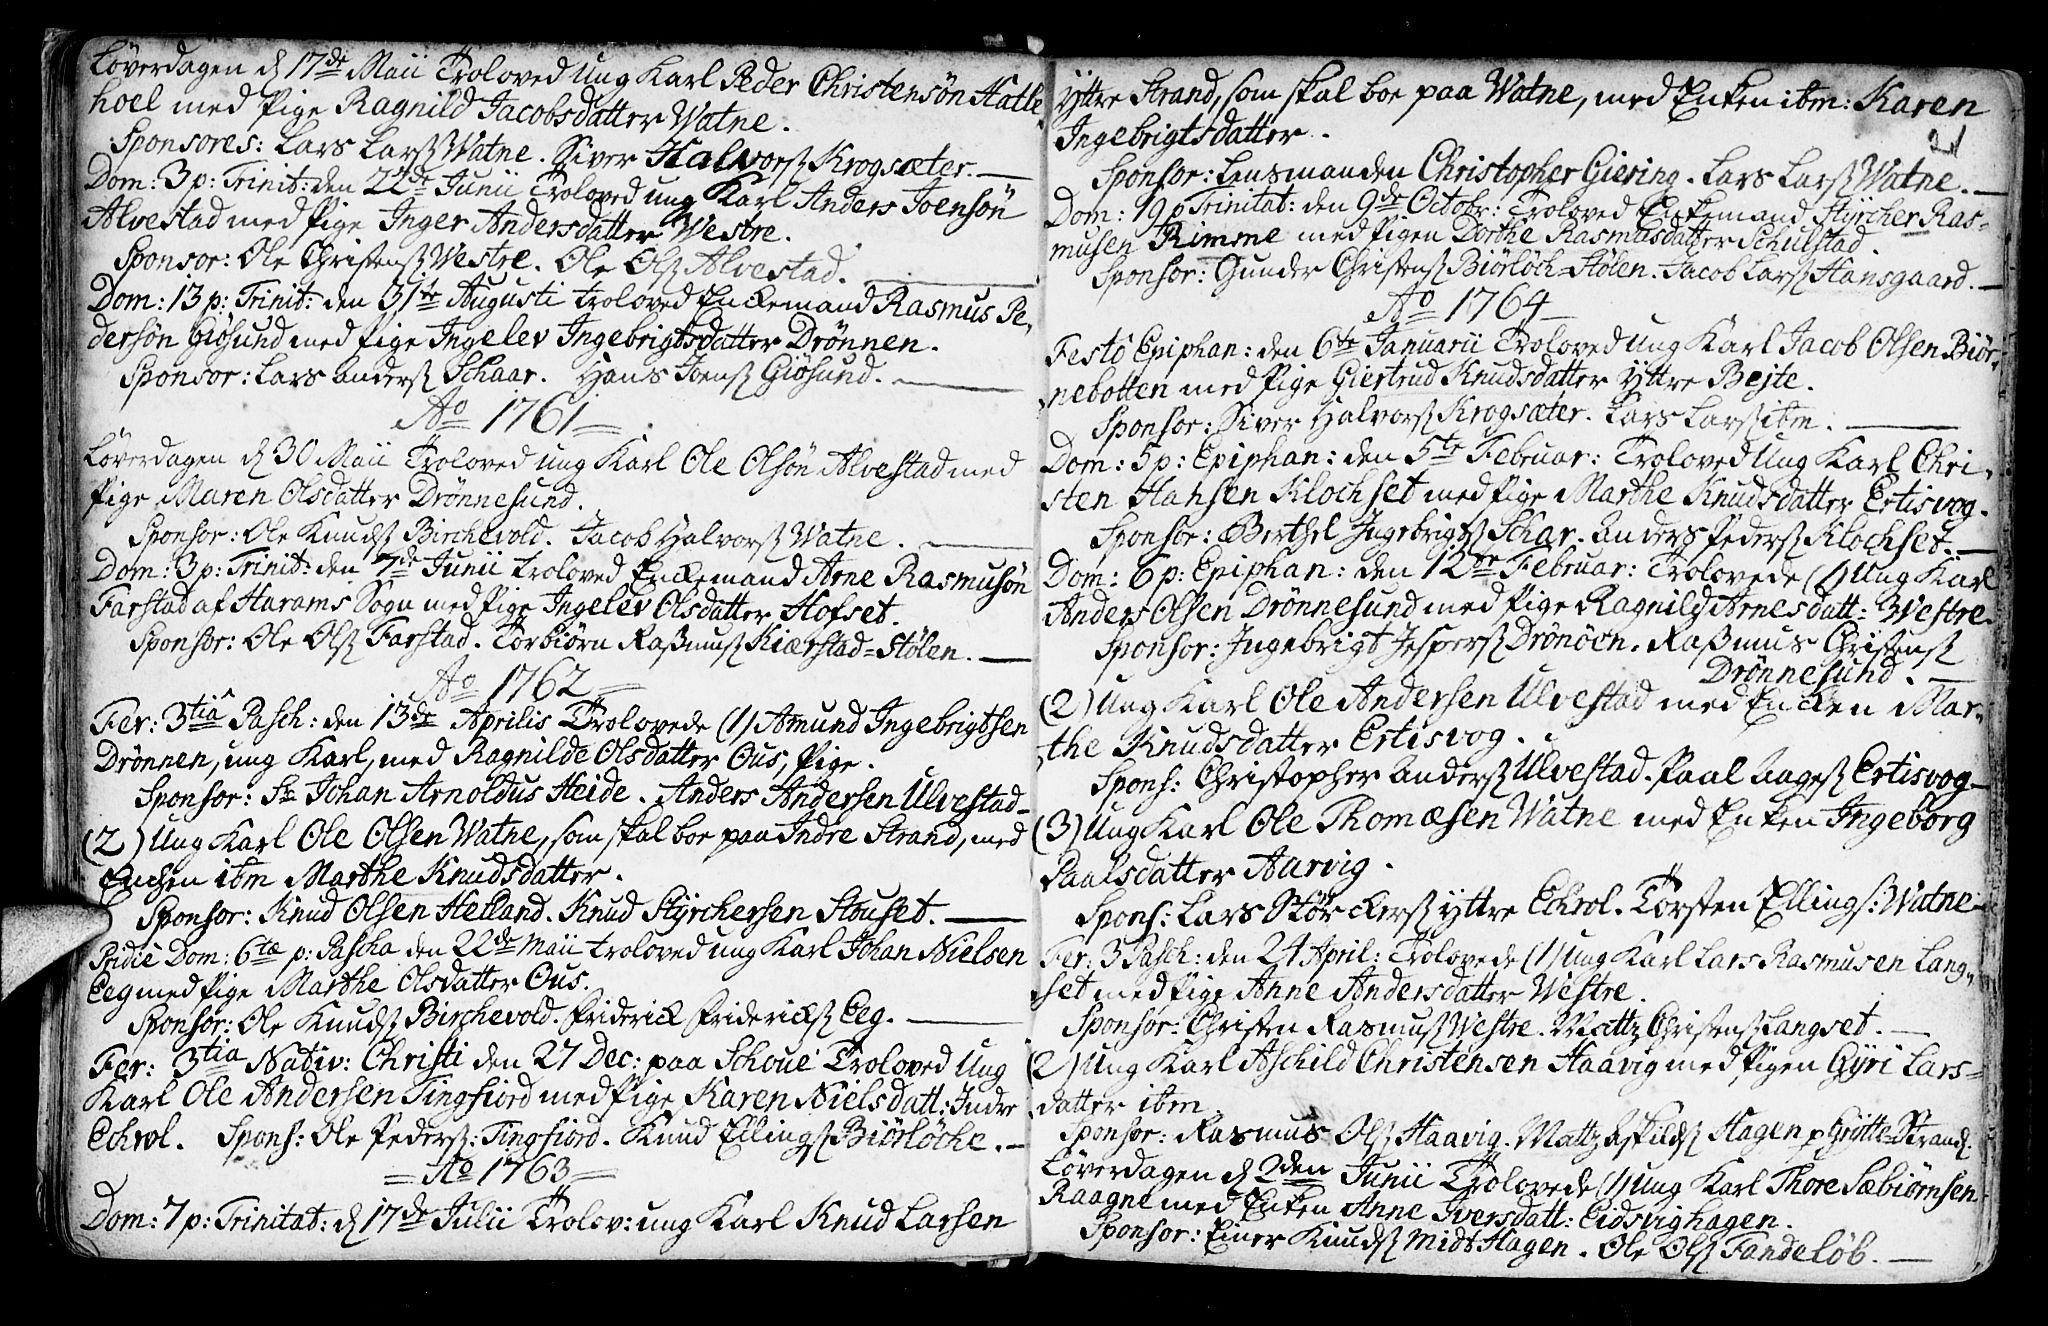 Løverdagen d 17de Maii Troloved ung Karl Peder Christensøn Hatle-
hoel med Pige Ragnild Jacobsdatter Watne.
Sponsores: Lars Larsz Watne. Siver Halvorsz Krogsæter.
Dom: 3 p: Trinit: den 22de Junii Troloved ung Karl Anders Joensøn
Alvestad med Pige Inger Andersdatter Westre.
Sponsor: Ole Christensz Westre. Ole Olsz Alvestad.
Dom: 13 p: Trinit: den 31te Augusti troloved Enckemand Rasmus Pe-
dersøn Giøsund med Pige Ingelev Ingebrigtsdatter Drønnen.
Sponsor: Lars Andersz Schaar. Hans Joensz Giøsund.
Ao 1761
Løverdagen d 30 Maii Troloved ung Karl Ole Olsøn Alvestad med
Pige Maren Olsdatter Drønnesund.
Sponsor: Ole Knudsz Birchevold. Jacob Halvorsz Watne.
Dom: 3 p: Trinit: den 7de Junii troloved Enckemand Arne Rasmusøn
Farstad af Harams Sogn med Pige Ingelev Olsdatter Hofset.
Sponsor: Ole Olsz Farstad. Torbiørn Rasmusz Kiærstad=Stølen.
Ao 1762
Fer: 3tia Pasch: den 13de Aprilis Trolovede (1) Amund Ingebrigtsen
Drønnen, ung Karl, med Ragnilde Olsdatter Ous, Pige.
Sponsor: Sr Johan Arnoldus Heide. Anders Andersen Ulvestad
(2) Ung Karl Ole Olsen Watne, som skal boe paa Indre Strand, med
Enchen ibm Marthe Knudsdatter.
Sponsor: Knud Olsen Hetland. Knud Styrchersen Stouset.
Pridie Dom: 6tæ p: Pascha den 22de Maii troloved ung Karl Johan Nielsen
Eeg med Pige Marthe Olsdatter Ous.
Sponsor: Ole Knudsz Birchevold. Friderick Fridericksz Eeg.
Fer: 3tia Nativ: Christi den 27 Dec: paa Schoue Troloved Ung
Karl Ole Andersen Tingfiord med Pige Karen Nielsdatt: Indre
Echrol. Spons: Ole Pedersz: Tingfiord. Knud Ellingsz Biørløche.
Ao 1763
Dom: 7 p: Trinitat: d 17de Julii Trolov: ung Karl Knud Larsen
Yttre Strand, som skal boe paa Watne, med Enken ibm: Karen
Ingebrigtsdatter.
21
Sponsor: Lensmanden Christopher Giering. Lars Larsz Watne.
Dom: 19 p Trinitat: den 9de Octobr: Troloved Enkemand Styrcher Ras-
musen Rimme med Pigen Dorthe Rasmusdatter Schulstad.
Sponsor: Gunder Christensz Biørløch=Stølen. Jacob Larsz Hansgaard.
Ao 1764
Festo Epiphan: den 6te Januarii Troloved ung Karl Jacob Olsen Biør-
nebotten med Pige Giertrud Knudsdatter Yttre Bejte.
Sponsor: Siver Halvorsz Krogsæter. Lars Larsz ibm.
Dom: 5 p: Epiphan: den 5te Februar: Troloved Ung Karl Chri-
sten Hansen Klochset med Pige Marthe Knudsdatter Ertisvog.
Sponsor: Berthel Ingebrigtsz Schar. Anders Pedersz Klochset.
Dom: 6 p: Epiphan: den 12te Februar: Trolovede (1) Ung Karl
Anders Olsen Drønnesund med Pige Ragnild Arnesdatt: Westre.
Sponsor: Ingebrigt Jespersz Drønøen. Rasmus Christensz
Drønnesund.
(2) Ung Karl Ole Andersen Ulvestad med Encken Mar-
the Knudsdatter Ertisvog.
Spons: Christopher Andersz Ulvestad. Paal Aagesz Ertisvog
(3) Ung Karl Ole Thomæsen Watne med Enken Ingeborg
Paalsdatter Aarvig.
Spons: Lars Størckersz Yttre Echrol. Torsten Ellings: Watne
Fer: 3 Pasch: den 24 April: Trolovede (1) Ung Karl Lars Rasmusen Lang-
set med Pige Anne Andersdatter Westre.
Sponsor: Christen Rasmusz Westre. Mattz Christensz Langset.
(2) Ung Karl Aschild Christensen Haavig med Pigen Gyri Lars=
datter ibm
Sponsor: Rasmus Olsz Haavig. Mattz Askildsz Hagen p Grøtte=Strand.
Løverdagen d 2den Junii Trolovede (1) ung Karl Thore Sæbiørnsen
Raagne med Enken Anne Iversdatt: Eidsvighagen.
Sponsor: Einer Knudsz Midt Hagen. Ole Olsz Tandeløb.